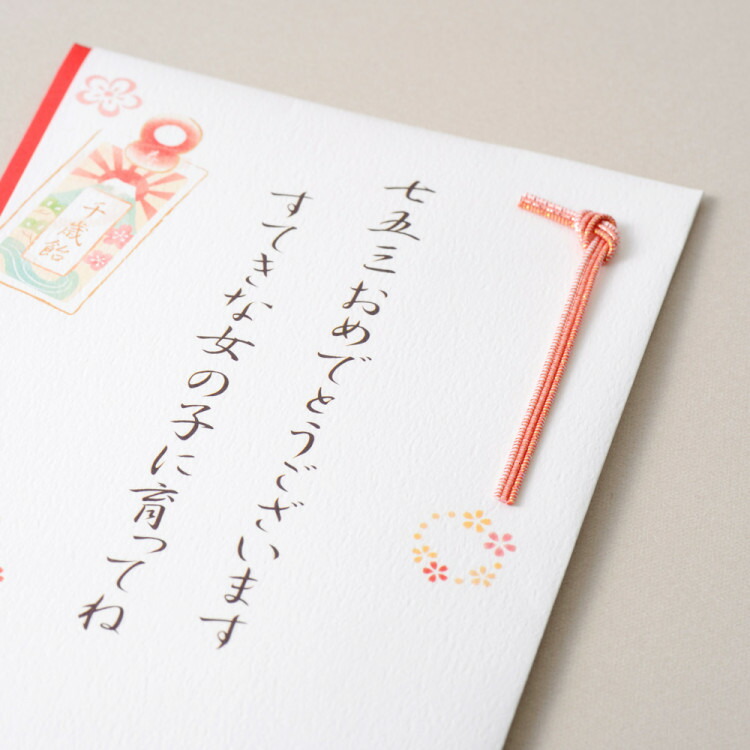 七五三おめでとうございます
すてきな女の子に育ってね
千歳飴